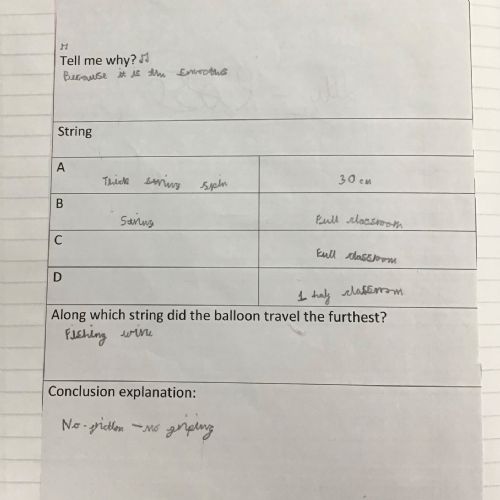 Tell me why?
Because it is the smoothes
String
A
Thick string 30 cm
B
String Full classroom
C
Full classroom
D
1 half classroom
Along which string did the balloon travel the furthest?
Fishing wire
Conclusion explanation:
No-friction - no griping